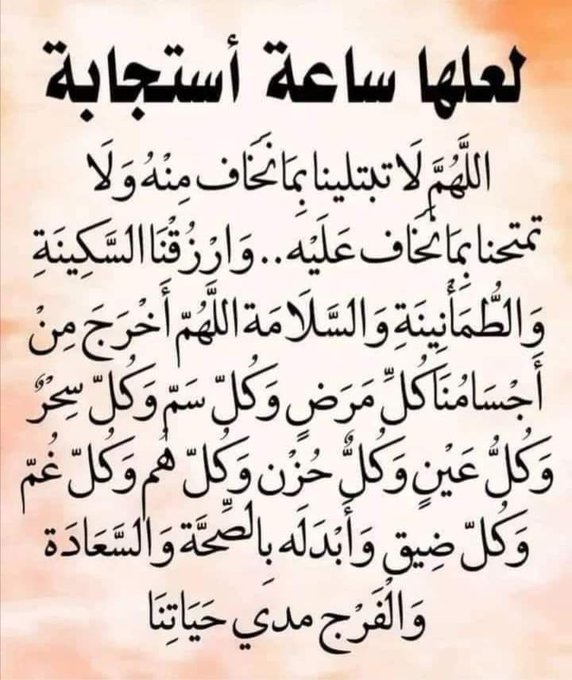 لعلها ساعة أستجابة
اللَّهُمَّ لَا تبتلينا بِمَا نَخَاف مِنْهُ وَلَا
تمتحنا بِمَا نَخَاف عَلَيْه.. وَارْزُقْنَا السَّكِينَةِ
وَالطُّمَأْنِينَةِ وَالسَّلَامَة اللَّهُمّ أَخْرَجَ مِنْ
أَجْسَامُنَا كُلِّ مَرَضٍ وَكُلّ سَمّ وَكُلّ سِحْرٌ
وَكُلُّ عَيْنٍ وَكُلُّ حُزْن وَكُلّ هُم وَكُلّ غُمّ
وَكُلّ ضِيق وَأَبْدَلَه بِالصِّحَّة وَالسَّعَادَة
وَالْفَرْج مدي حَيَاتِنَا